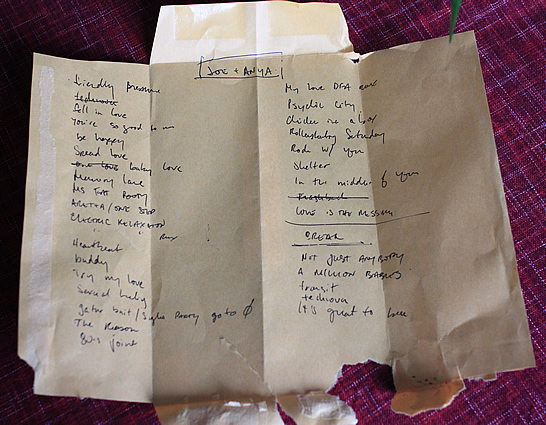 JOE + ANYA
friendly pressure
technova
fell in love
you're so good to me
be happy
Spread love
one love baby love
Memory Lane
MS FAT BOOTY
ARETHA / ONE STEP
ELECTRIC RELAXATION
" " Rmx
Heartbeat
buddy
Try my love
Sexual healing
gator bait / go to
The Reason
80s joint
My Love DFA rmx
Psychic City
Chicken in a box
Rollerskating Saturday
Rock w/ you
Shelter
In the middle of you
Flashback
LOVE IS THE MESSAGE
BREAK
NOT JUST ANYBODY
A MILLION BABIES
transit
technova
It's great to be here